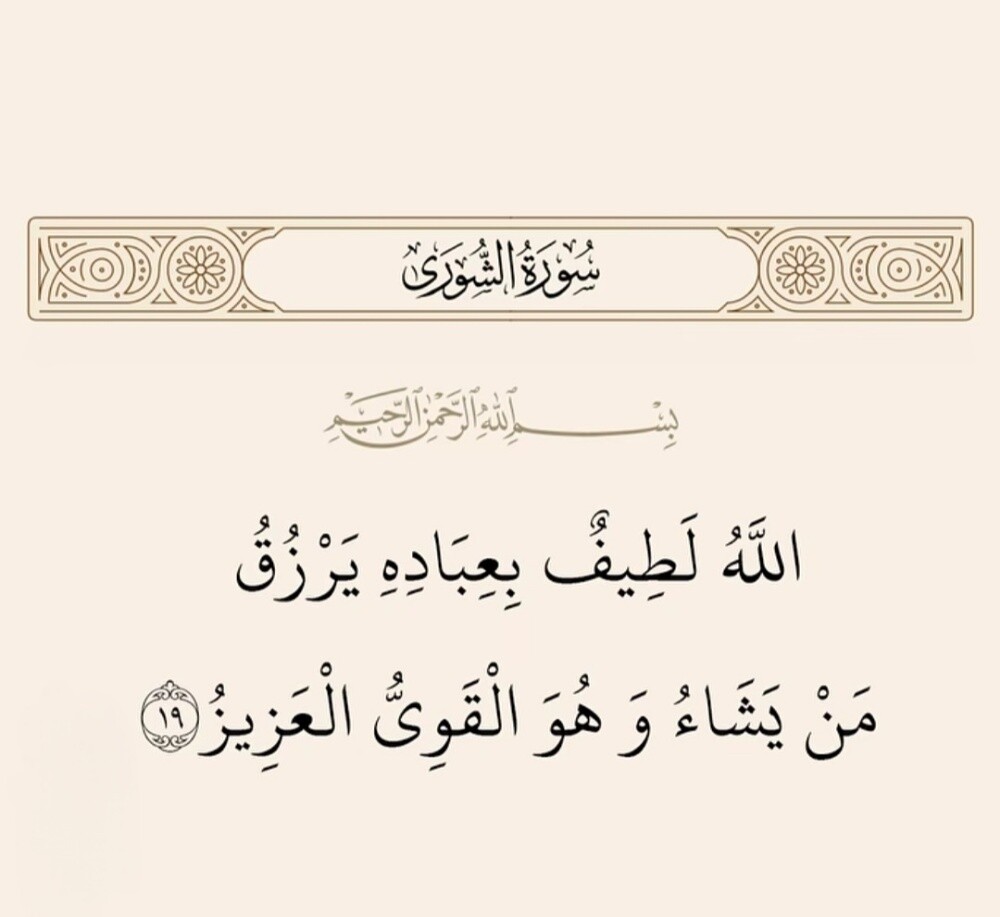 سُورَةُ الشُّورَىٰ
بِسْمِ اللَّهِ الرَّحْمَٰنِ الرَّحِيمِ
اللَّهُ لَطِيفٌ بِعِبَادِهِ يَرْزُقُ
مَنْ يَشَاءُ وَ هُوَ الْقَوِىُّ الْعَزِيزُ ١٩